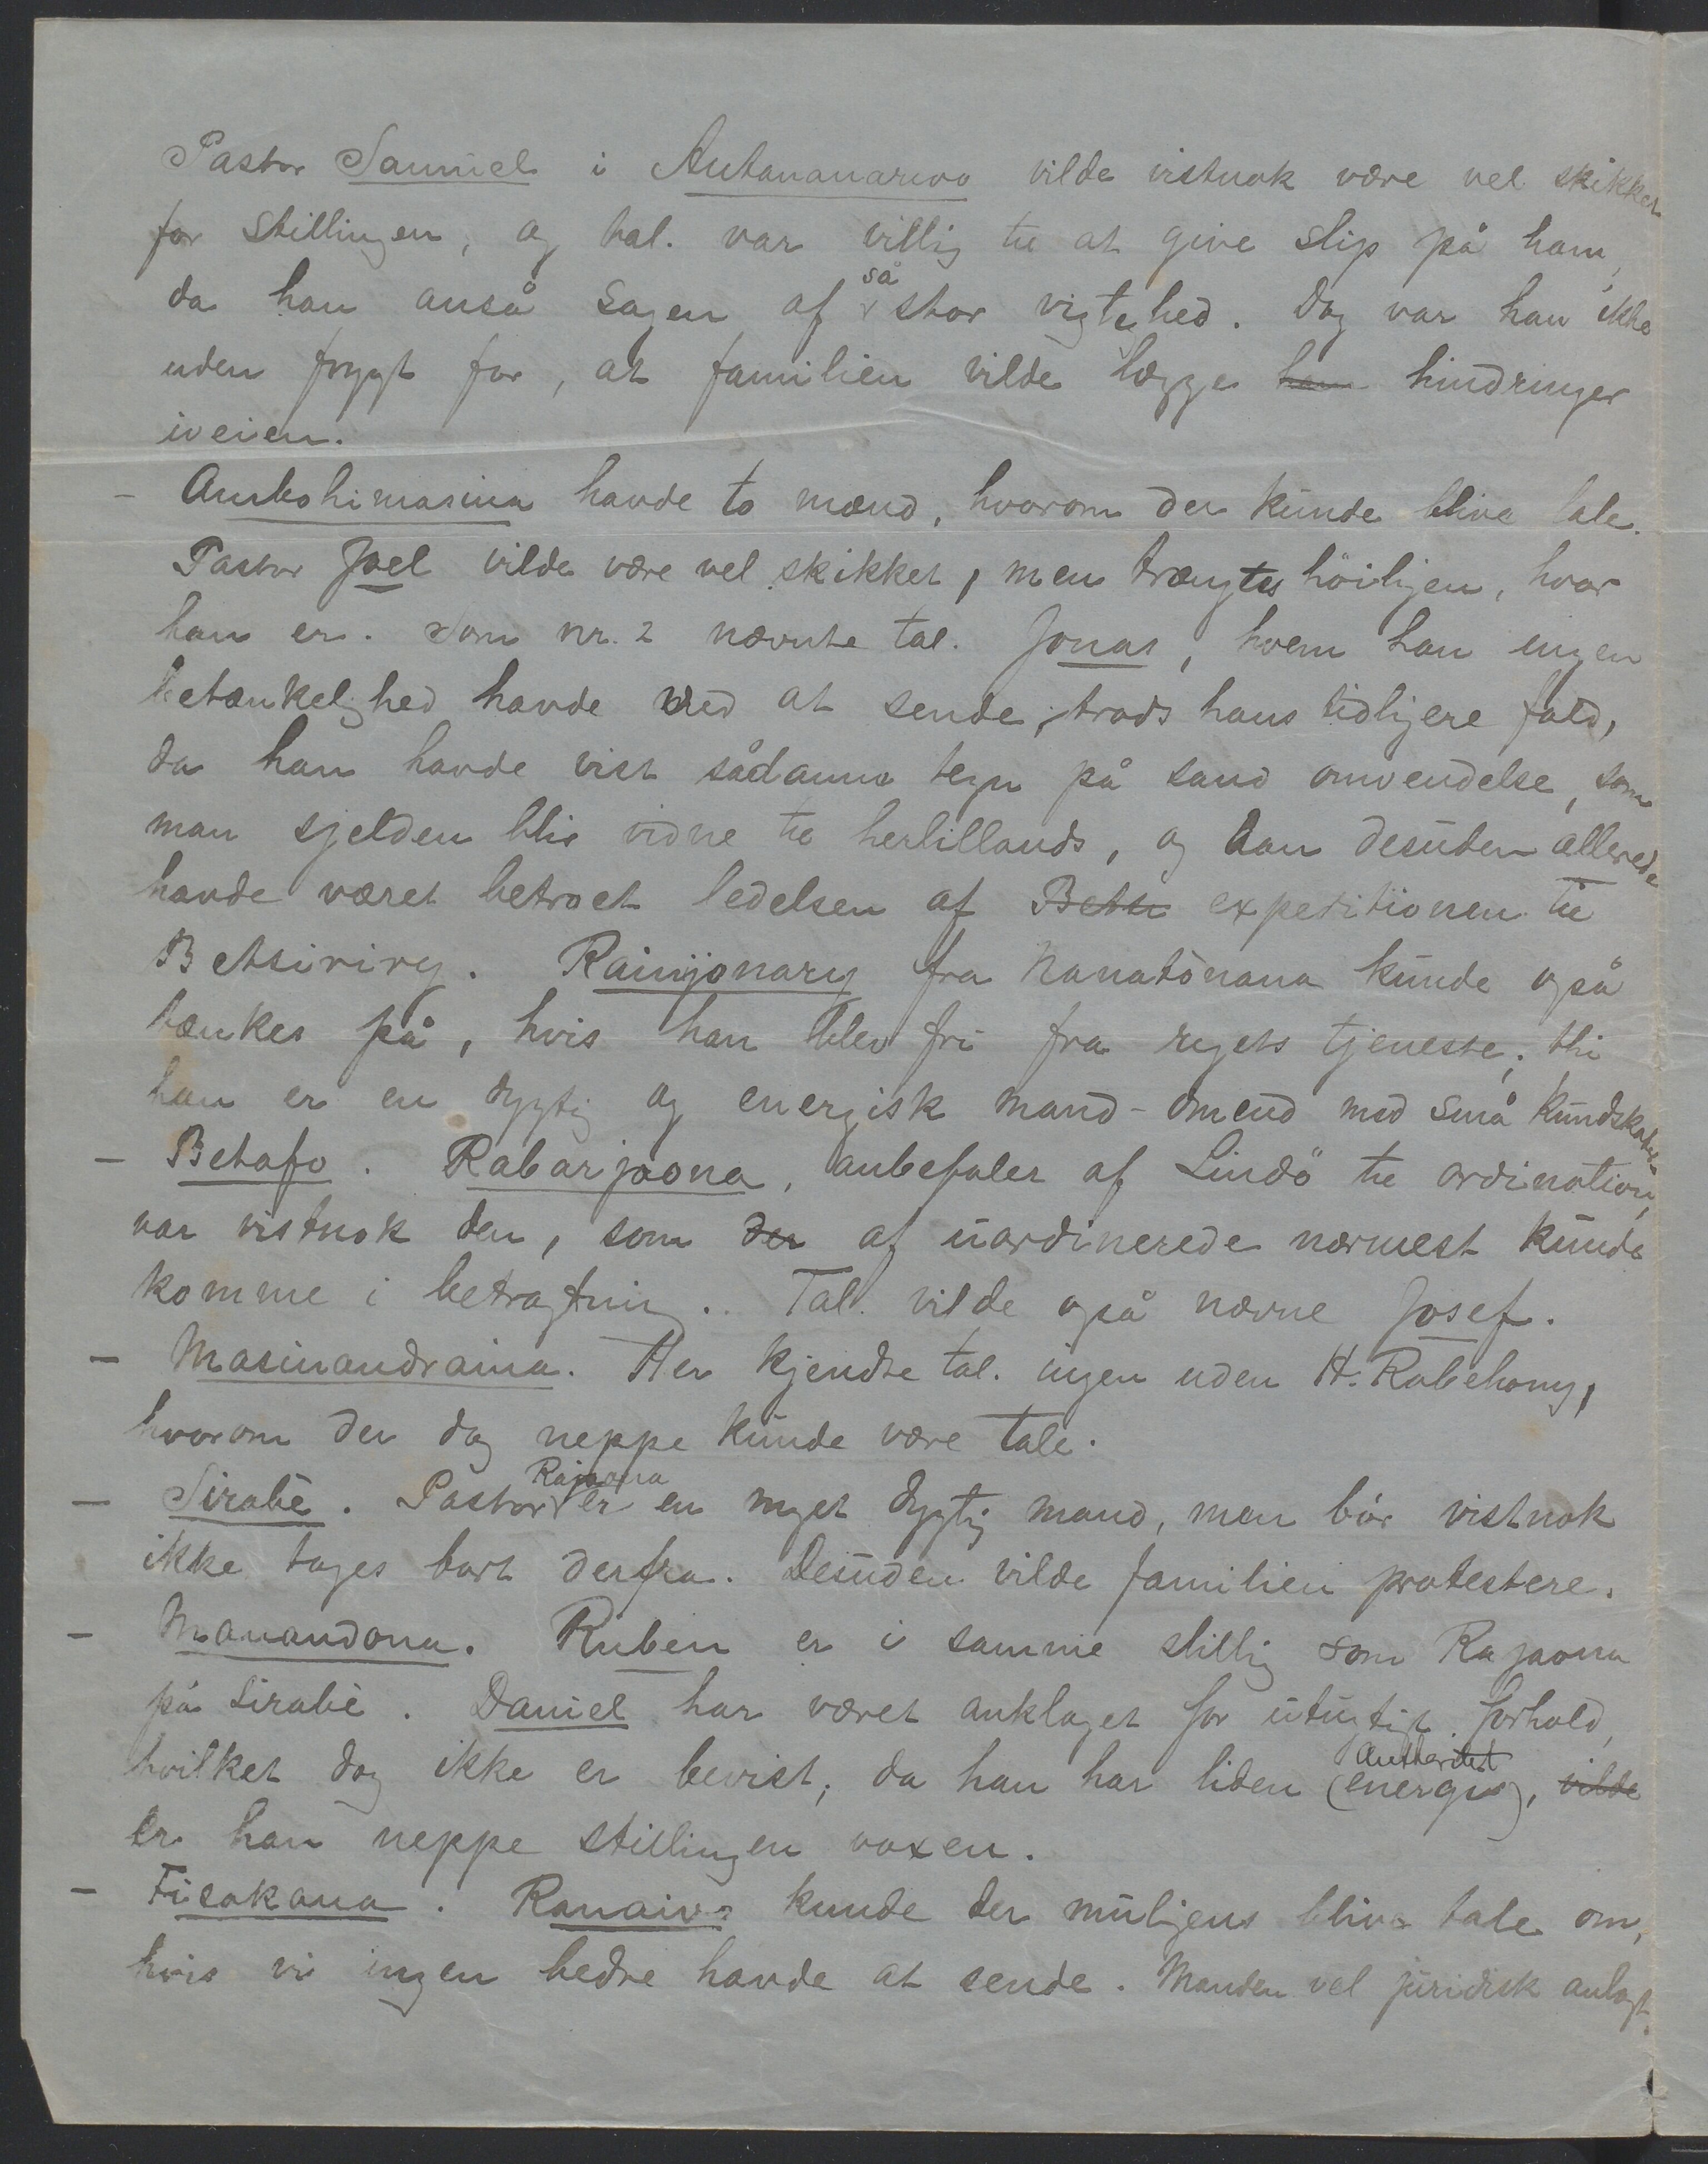 Pastor Samuel i Antananarivo vilde vistnok være vel skikket
for stillingen, og tal. var villig til at give slip på ham,
da han anså sagen af så stor vigtighed. Dog var han ikke
uden frygt for, at familien vilde lægge ham hindringer
iveien.
- Ambohimasina havde to mænd, hvorom der kunde blive tale.
Pastor Joel vilde være vel skikket, men trængtes höiligen, hvor
han er. Som nr. 2 nævnte tal. Jonas, hvem han ingen
betænkelighed havde ved at sende, trods hans tidligere fald,
da han havde vist sådanne tegn på sand omvendelse, som
man sjelden blir vidne til hertillands, og han desuten allerede
havde været betroet ledelsen af Betsi expeditionen til
Betsiriry. Rainijonary fra Nanatonana kunde også
tænkes på, hvis han blev fri fra rigets tjeneste; thi
han er en dygtig og energisk mand - omend med små kundskaber
- Betafo. Rabarijaona, anbefalet af Lindö til ordination,
var vistnok den, som der af uordinerede nærmest kunde
komme i betragtning. Tal. vilde også nævne Josef.
- Masinandraina. Her kjendte tal. ingen uden H. Rabehony,
hvorom der dog neppe kunde være tale.
- Sirabè. Pastor Rajaona er en meget dygtig mand, men bör vistnok
ikke tages bort derfra. Desuden vilde familien protestere.
- Manandona. Ruben er i samme stillig som Rajaona
på Sirabè. Daniel har været anklaget for utugtigt forhold,
hvilket dog ikke er bevist; da han har liden autoritet (energie), vilde
er han neppe stillingen voxen.
- Fisakana. Ranaivo kunde der muligens blive tale om,
hvis vi ingen bedre havde at sende. Manden vel juridisk anlagt.